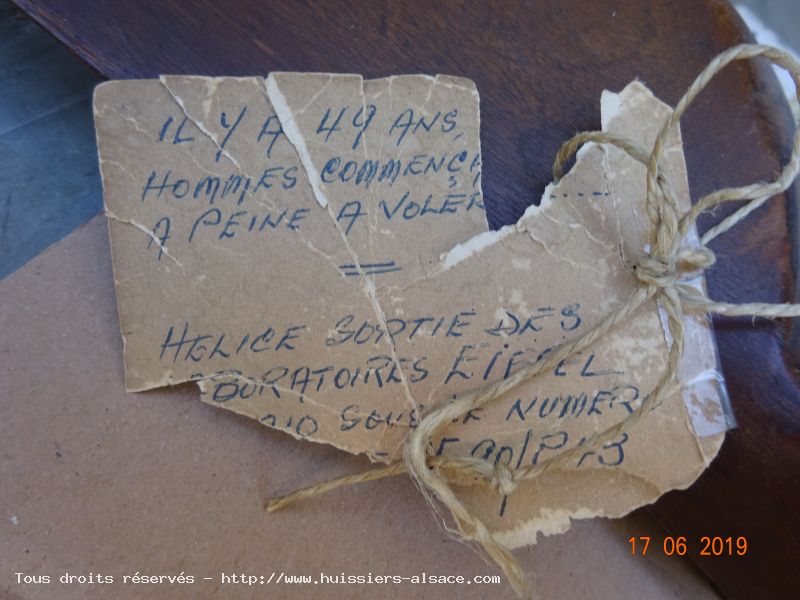 IL Y A 49 ANS,
HOMMES COMMENÇA
A PEINE A VOLER .....
HELICE SORTIE DES
BORATOIRES EIFFEL
SOUS LE NUMERO
90/P43
17 06 2019
Tous droits réservés - http://www.huissiers-alsace.com